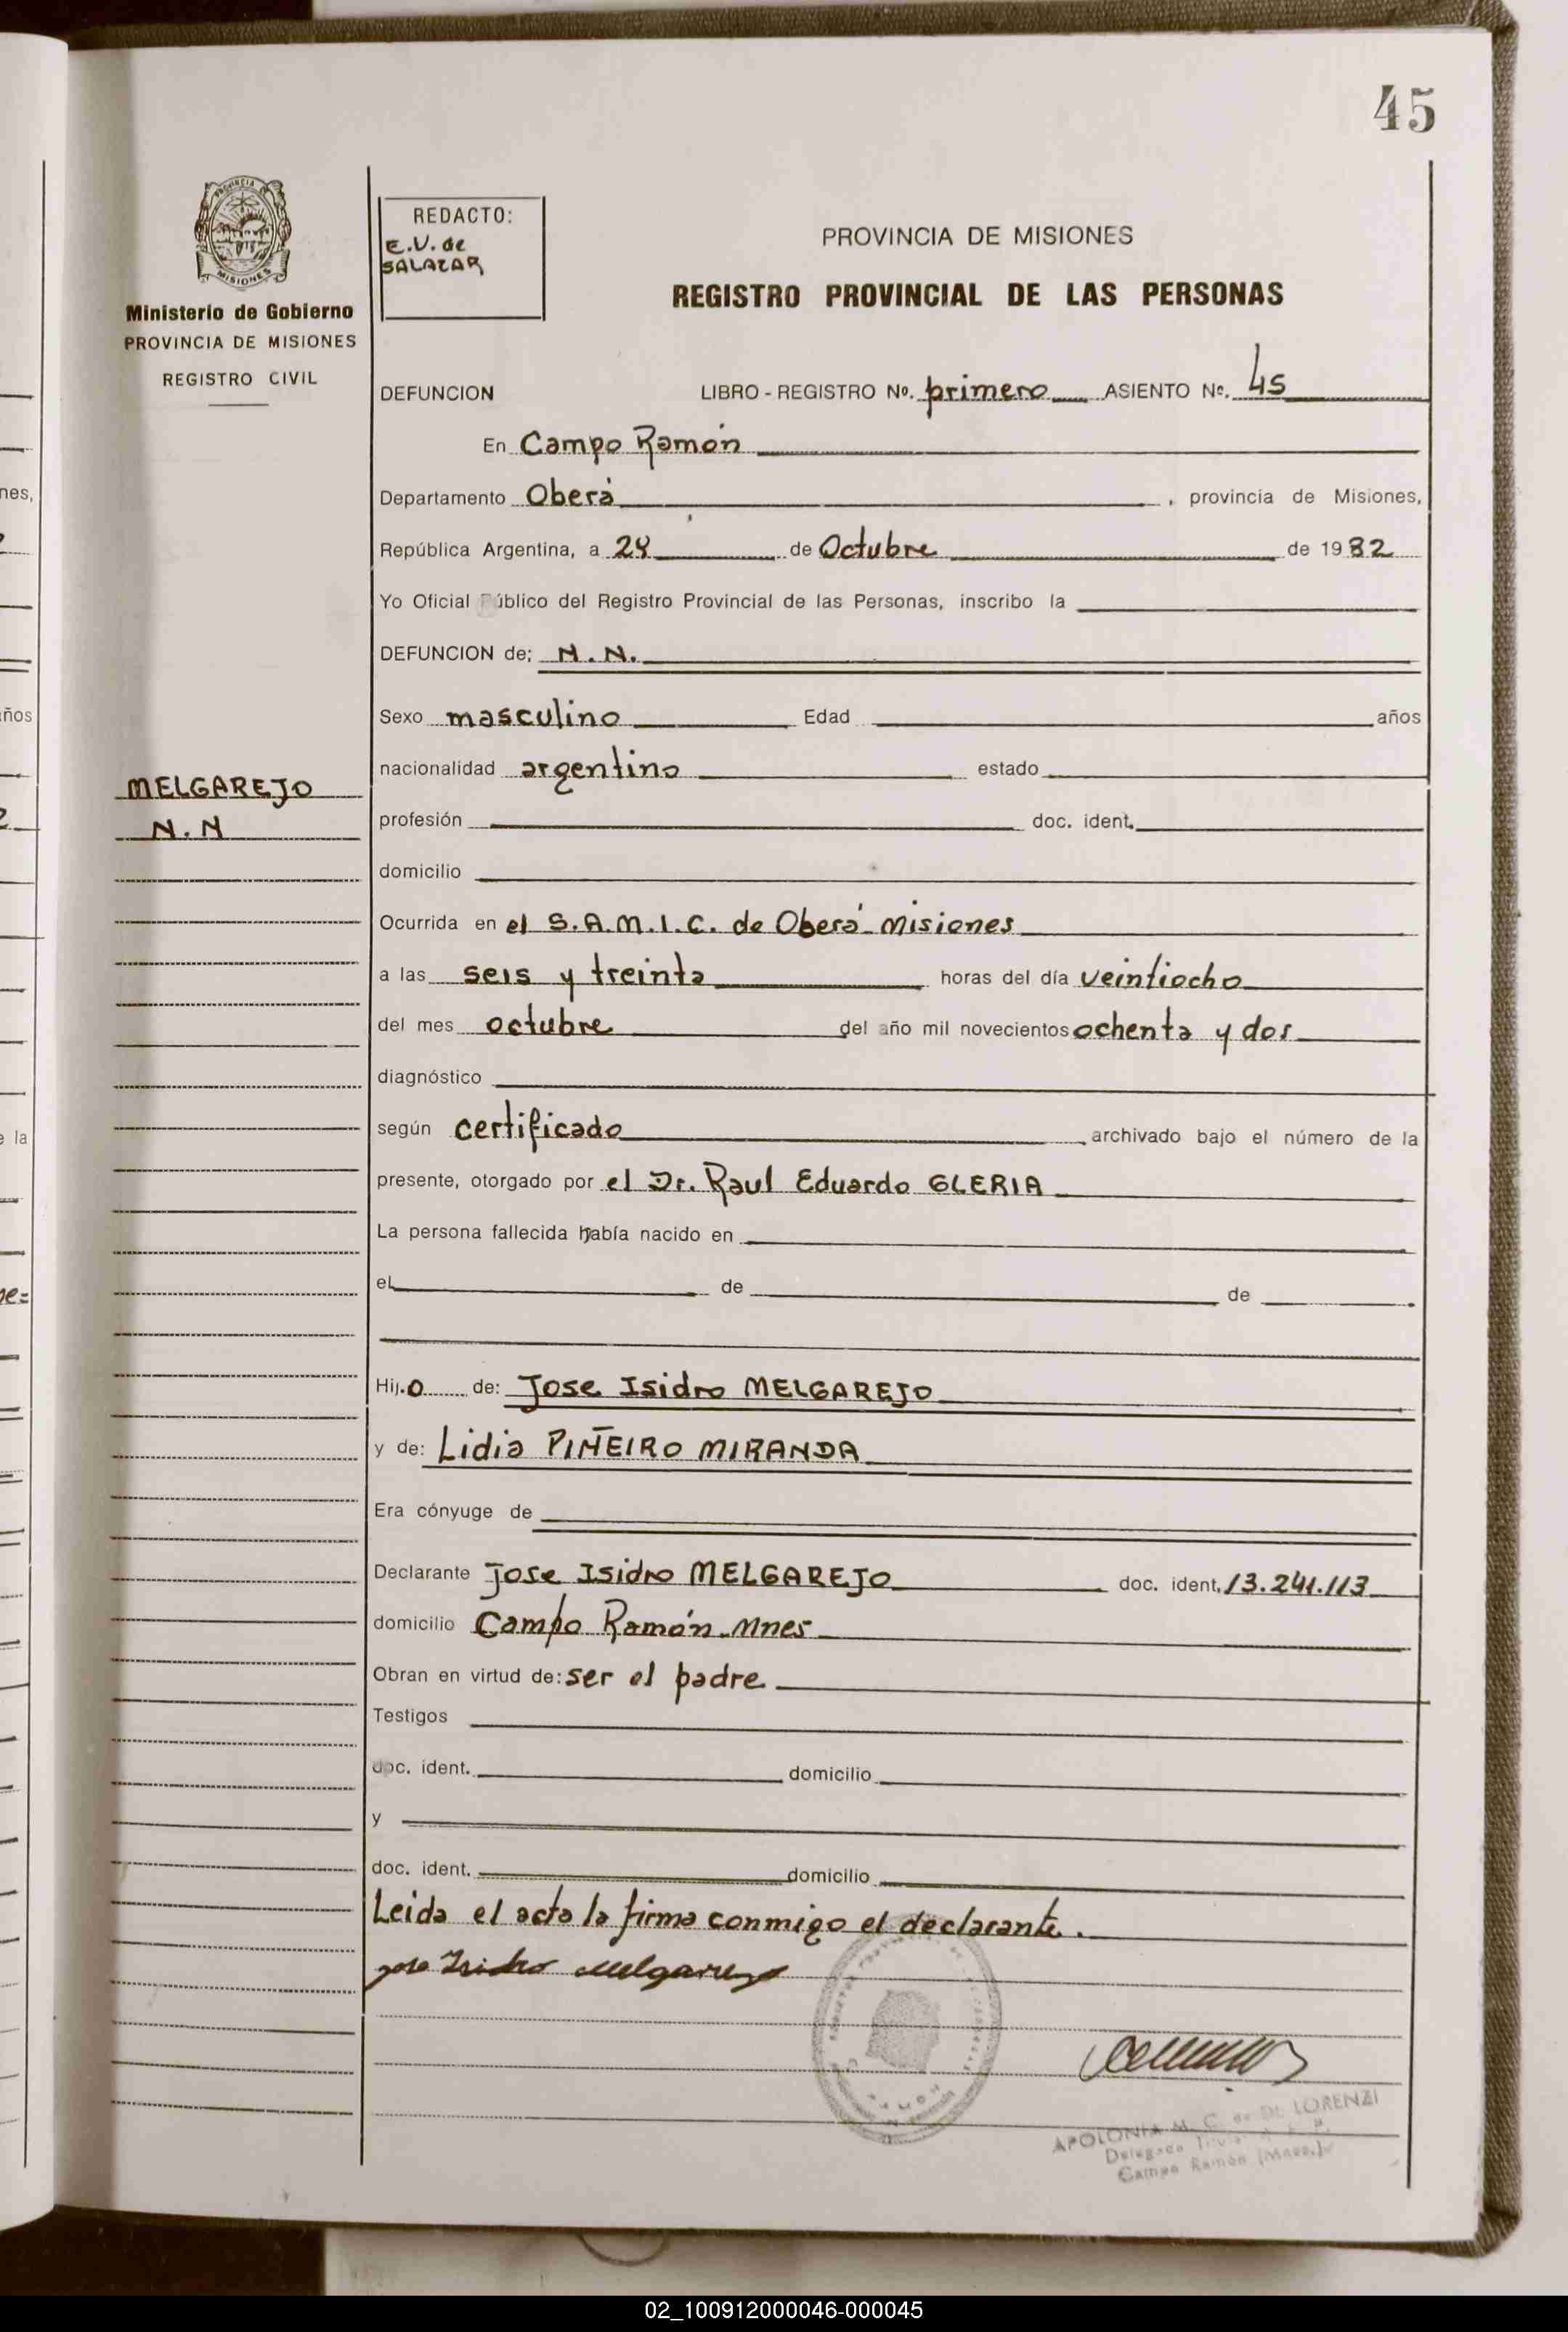 45
PROVINCIA
MISIONES
Ministerio de Gobierno
PROVINCIA DE MISIONES
REGISTRO CIVIL
REDACTO:
E.V. de
SALAZAR
PROVINCIA DE MISIONES
REGISTRO PROVINCIAL DE LAS PERSONAS
DEFUNCION LIBRO - REGISTRO Nº. primero ASIENTO Nº. 45
En Campo Ramón
Departamento Oberá, provincia de Misiones,
República Argentina, a 24 de Octubre de 1982
Yo Oficial Público del Registro Provincial de las Personas, inscribo la
DEFUNCION de; N.N.
Sexo masculino Edad años
nacionalidad argentino estado
MELGAREJO
N.N
profesión doc. ident.
domicilio
Ocurrida en el S.A.M.I.C. de Oberá Misiones
a las seis y treinta horas del día veintiocho
del mes octubre del año mil novecientos ochenta y dos
diagnóstico
según certificado archivado bajo el número de la
presente, otorgado por el Dr. Raul Eduardo GLERIA
La persona fallecida había nacido en
el de de
Hij.o de: Jose Isidro MELGAREJO
y de: Lidia PIÑEIRO MIRANDA
Era cónyuge de
Declarante Jose Isidro MELGAREJO doc. ident. 13.241.113
domicilio Campo Ramón Mnes
Obran en virtud de: ser el padre
Testigos
doc. ident. domicilio
y
doc. ident. domicilio
Leida el acta la firma conmigo el declarante.
Jose Isidro Melgarejo
APOLONIA M. C. de DE LORENZI
Delegada
Campo Ramón (Mnes.)
02_100912000046-000045